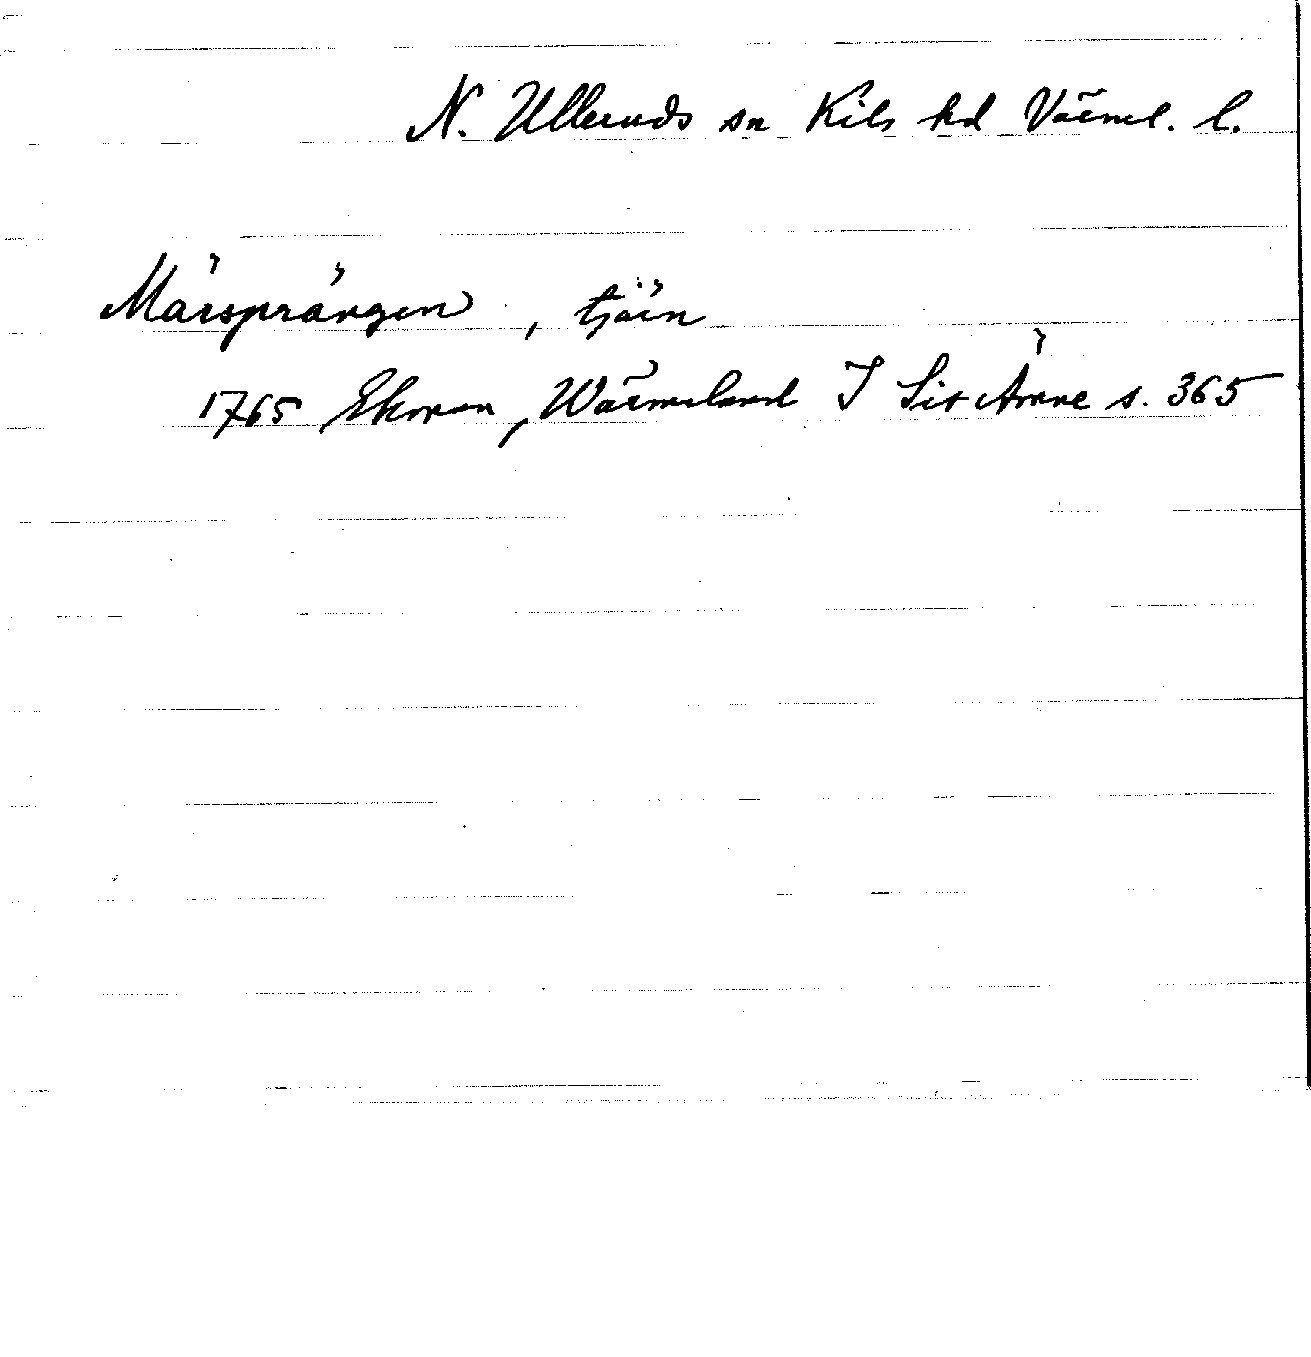 N. Ulleruds sn Kils hd Värml. l.
Mårsprången, tjärn
1765 Ekman, Wärmeland I Lis Åmme s. 365